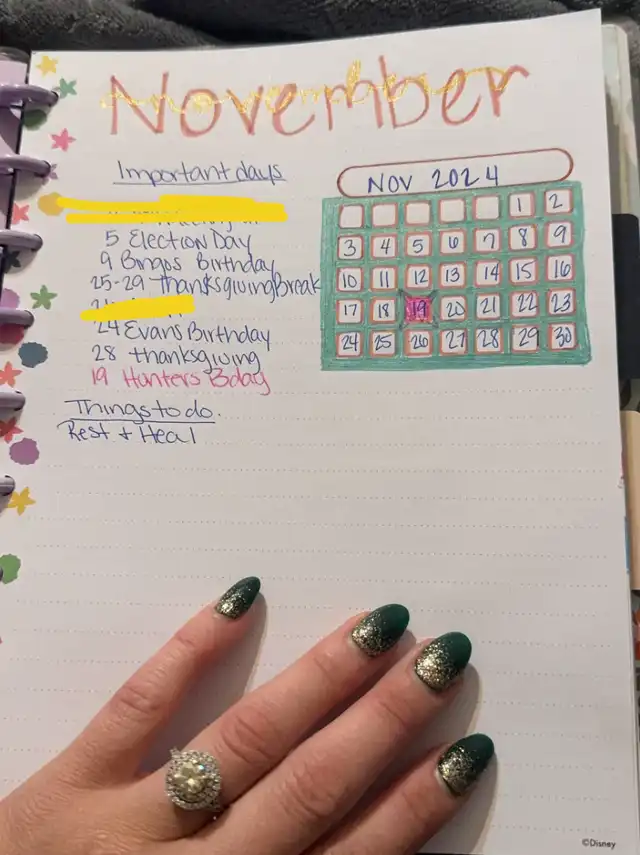 November
Important days
5 Election Day
9 Bingos Birthday
25-29 Thanksgiving Break
24 Evans Birthday
28 thanksgiving
19 Hunters Bday
Things to do.
Rest + Heal
NOV 2024
1 2
3 4 5 6 7 8 9
10 11 12 13 14 15 16
17 18 19 20 21 22 23
24 25 26 27 28 29 30
©Disney